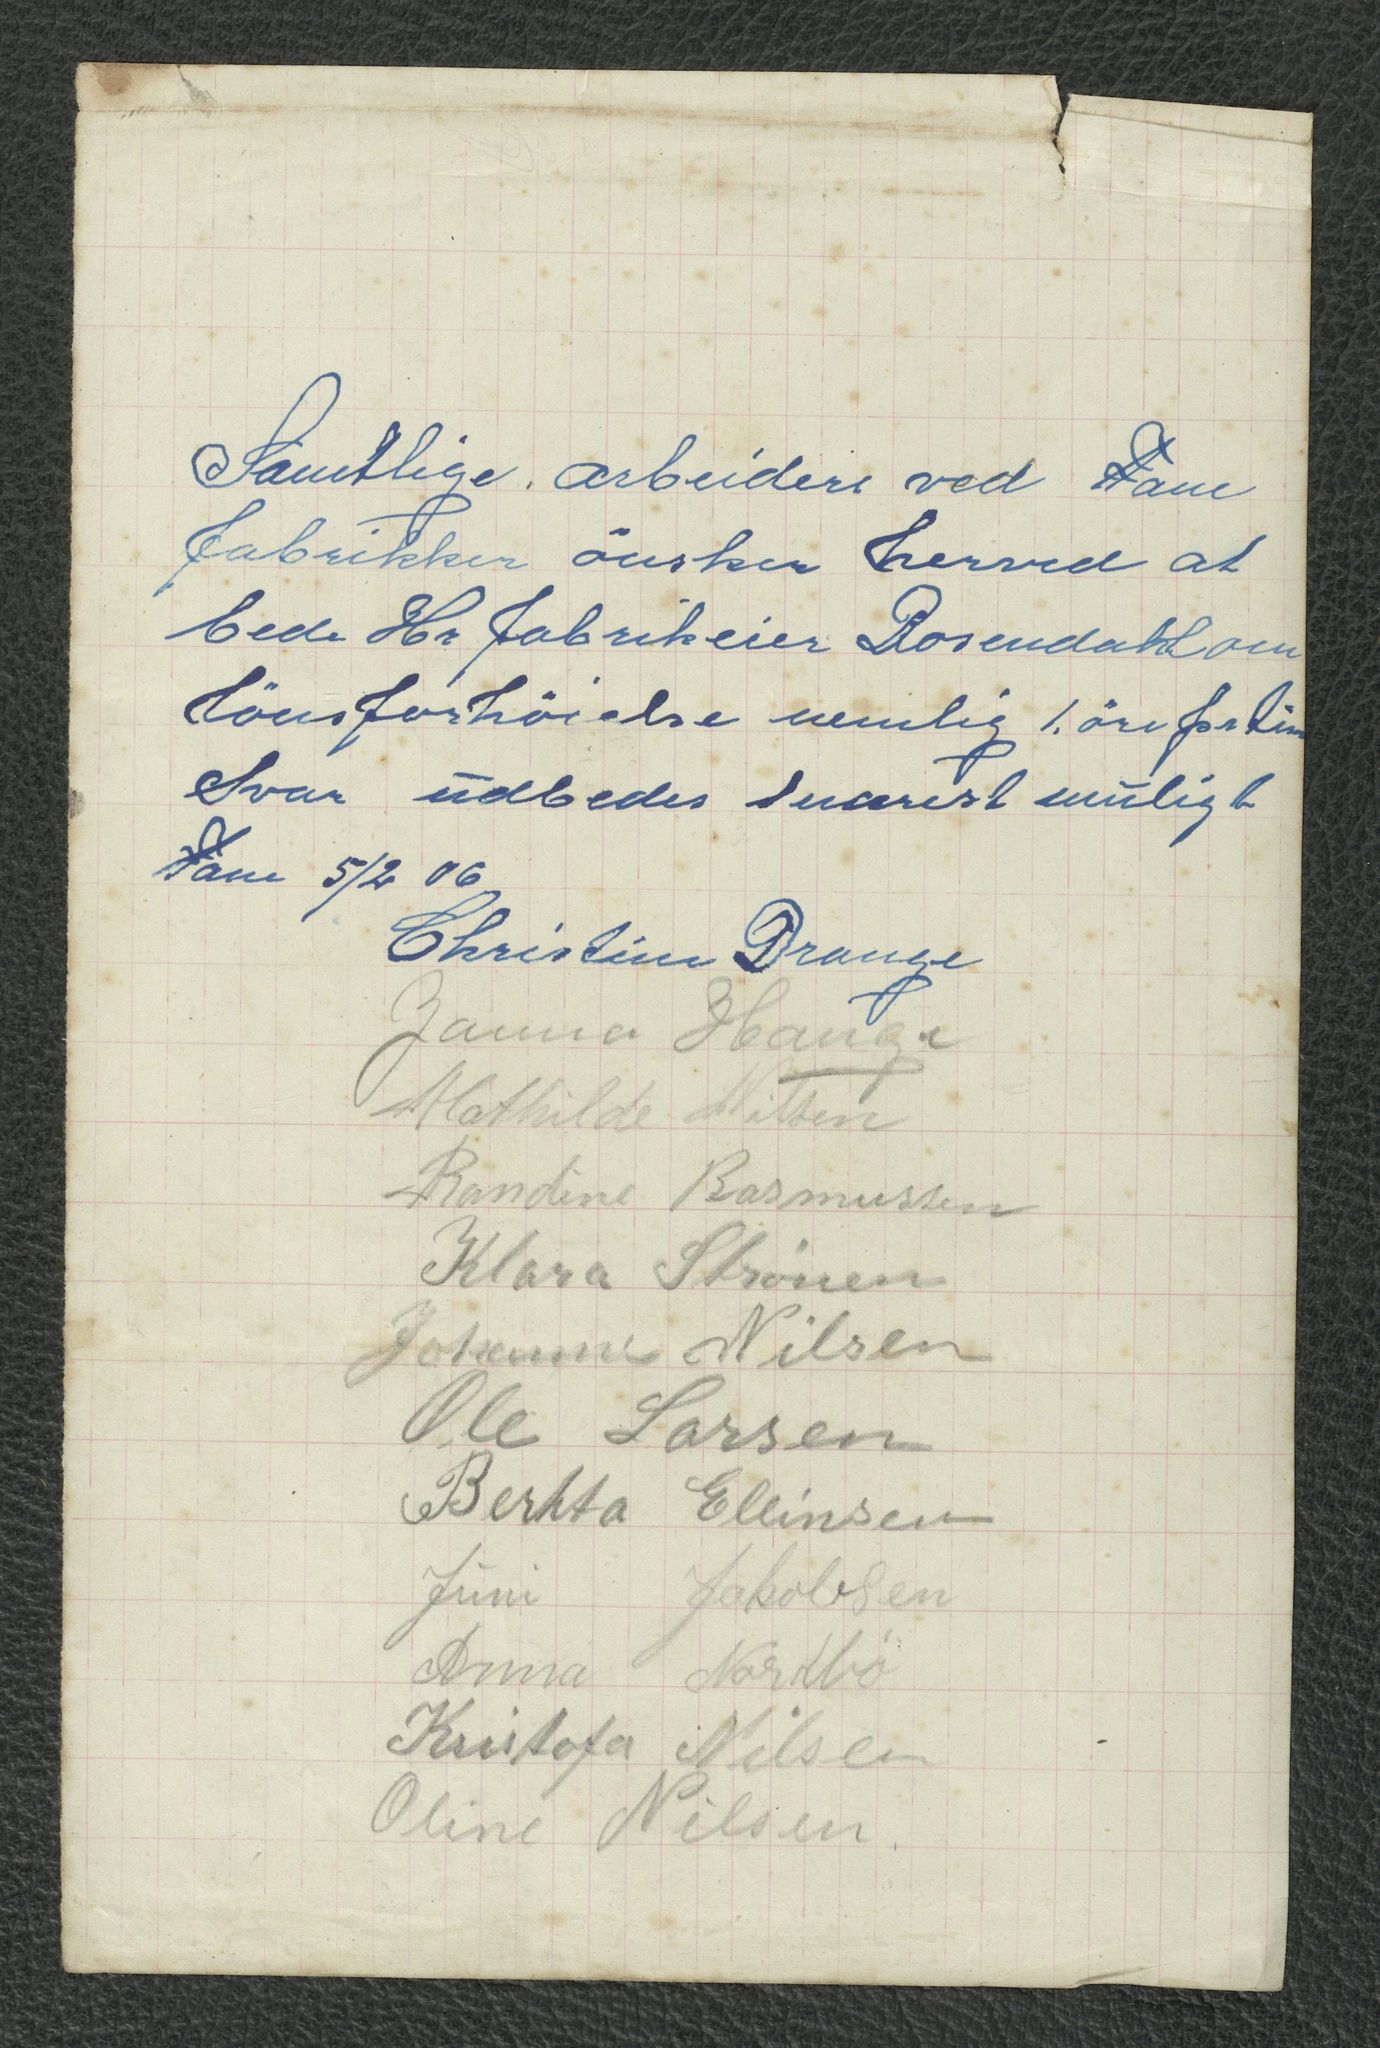 Samtlige arbeidere ved Fane
fabrikker önsker herved at
bede Hr fabrikeier Rosendahl om
lönsforhöielse nemlig 1. öre pr tim
Svar ŭdbedes snarest mŭligt
Fane 5/2 06
Christine Drange
Janna Hauge
Mathilde Nilsen
Randine Rasmussen
Klara Strönen
Johanne Nilsen
Ole Larsen
Berhta Ellinsen
Jŭni Jakobsen
Anna Nordbö
Kristofa Nilsen
Oline Nilsen.